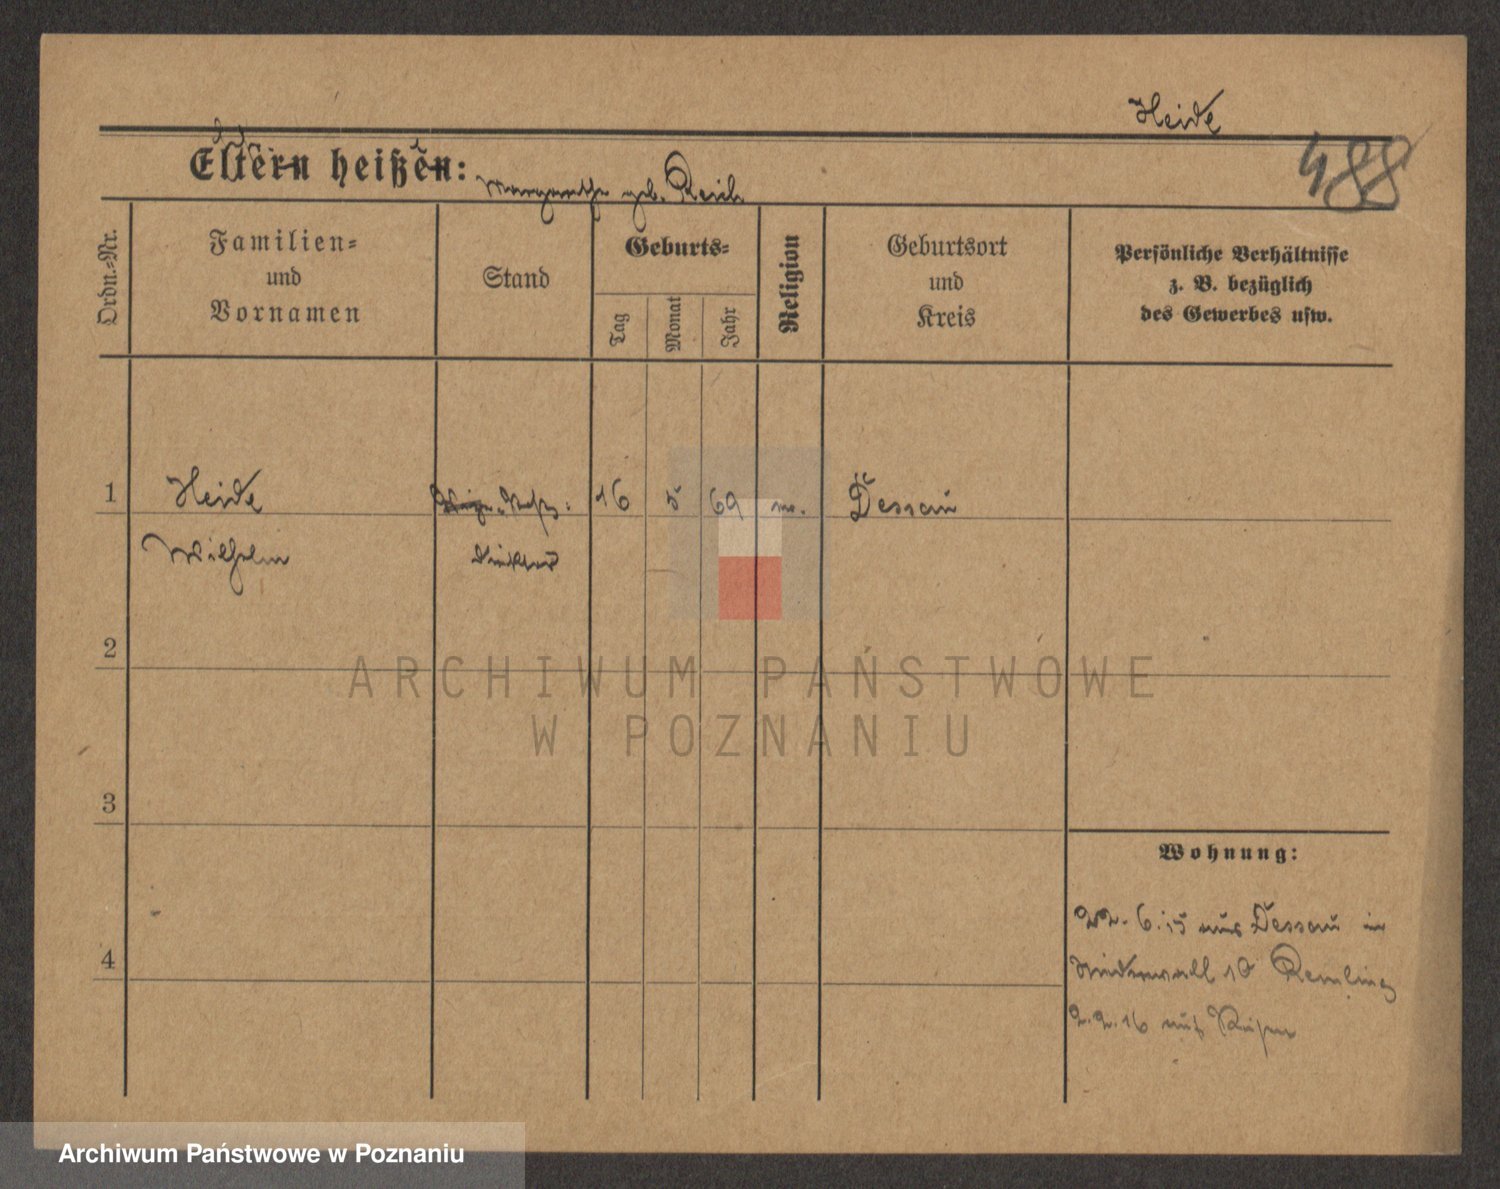 Heide
488
Eltern heißen: Margarethe geb. Reich
Ordn.-Nr.
Familien-
und
Vornamen
Stand
Geburts-
Tag
Monat
Jahr
Religion
Geburtsort
und
Kreis
Persönliche Verhältnisse
z. B. bezüglich
des Gewerbes usw.
1 Heide 16 5 69 Dessau
Wilhelm Direktor
2
3
4
Wohnung:
22.6.15 aus Dessau in
Niederwall 10 Remling
2.2.16 auf Reisen
ARCHIWUM PAŃSTWOWE
W POZNANIU
Archiwum Państwowe w Poznaniu